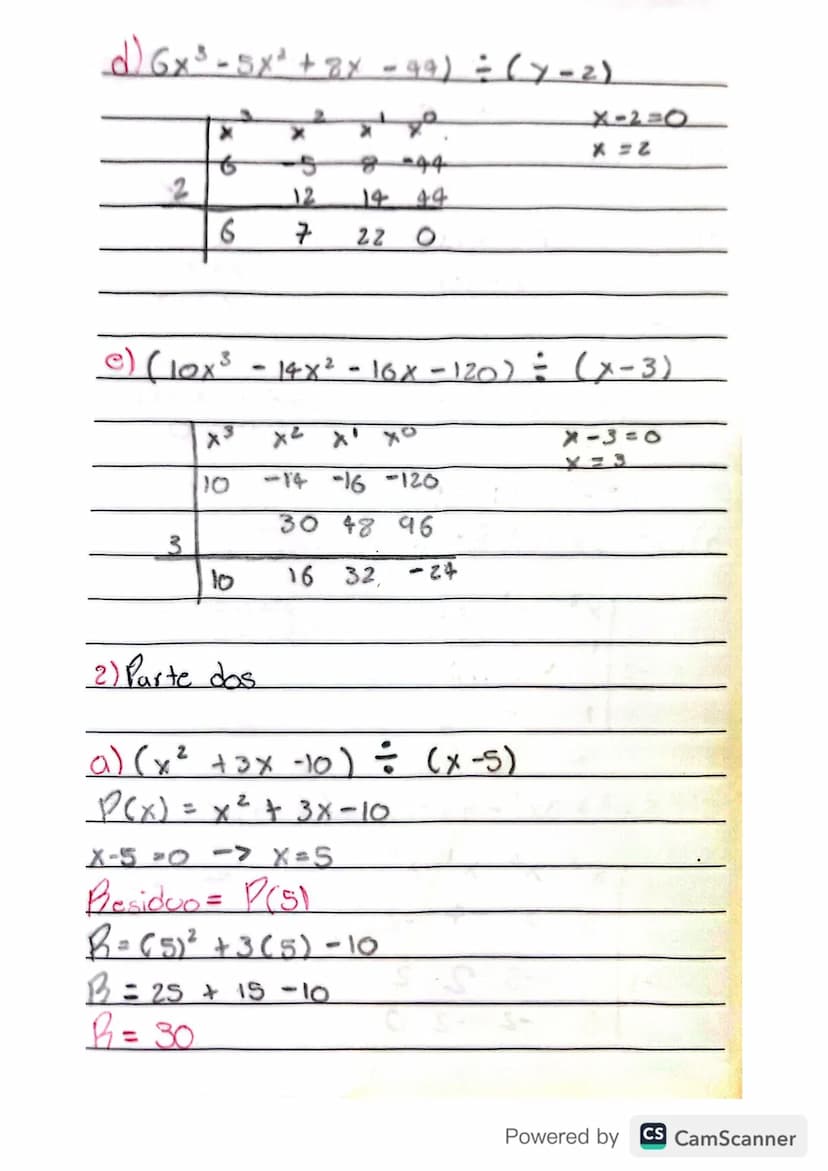 d) 6x³ - 5x² + 8x - 44) ÷ (x - 2)
x³ x² x¹ x⁰
x - 2 = 0
6 -5 8 -44
x = 2
2 12 14 44
6 7 22 0
e) (10x³ - 14x² - 16x - 120) ÷ (x - 3)
x³ x² x¹ x⁰
x - 3 = 0
x = 3
10 -14 -16 -120
30 48 96
3
10 16 32 -24
2) Parte dos
a) (x² + 3x - 10) ÷ (x - 5)
P(x) = x² + 3x - 10
x - 5 = 0 -> x = 5
Residuo = P(5)
R = (5)² + 3(5) - 10
R = 25 + 15 - 10
R = 30
Powered by CS CamScanner